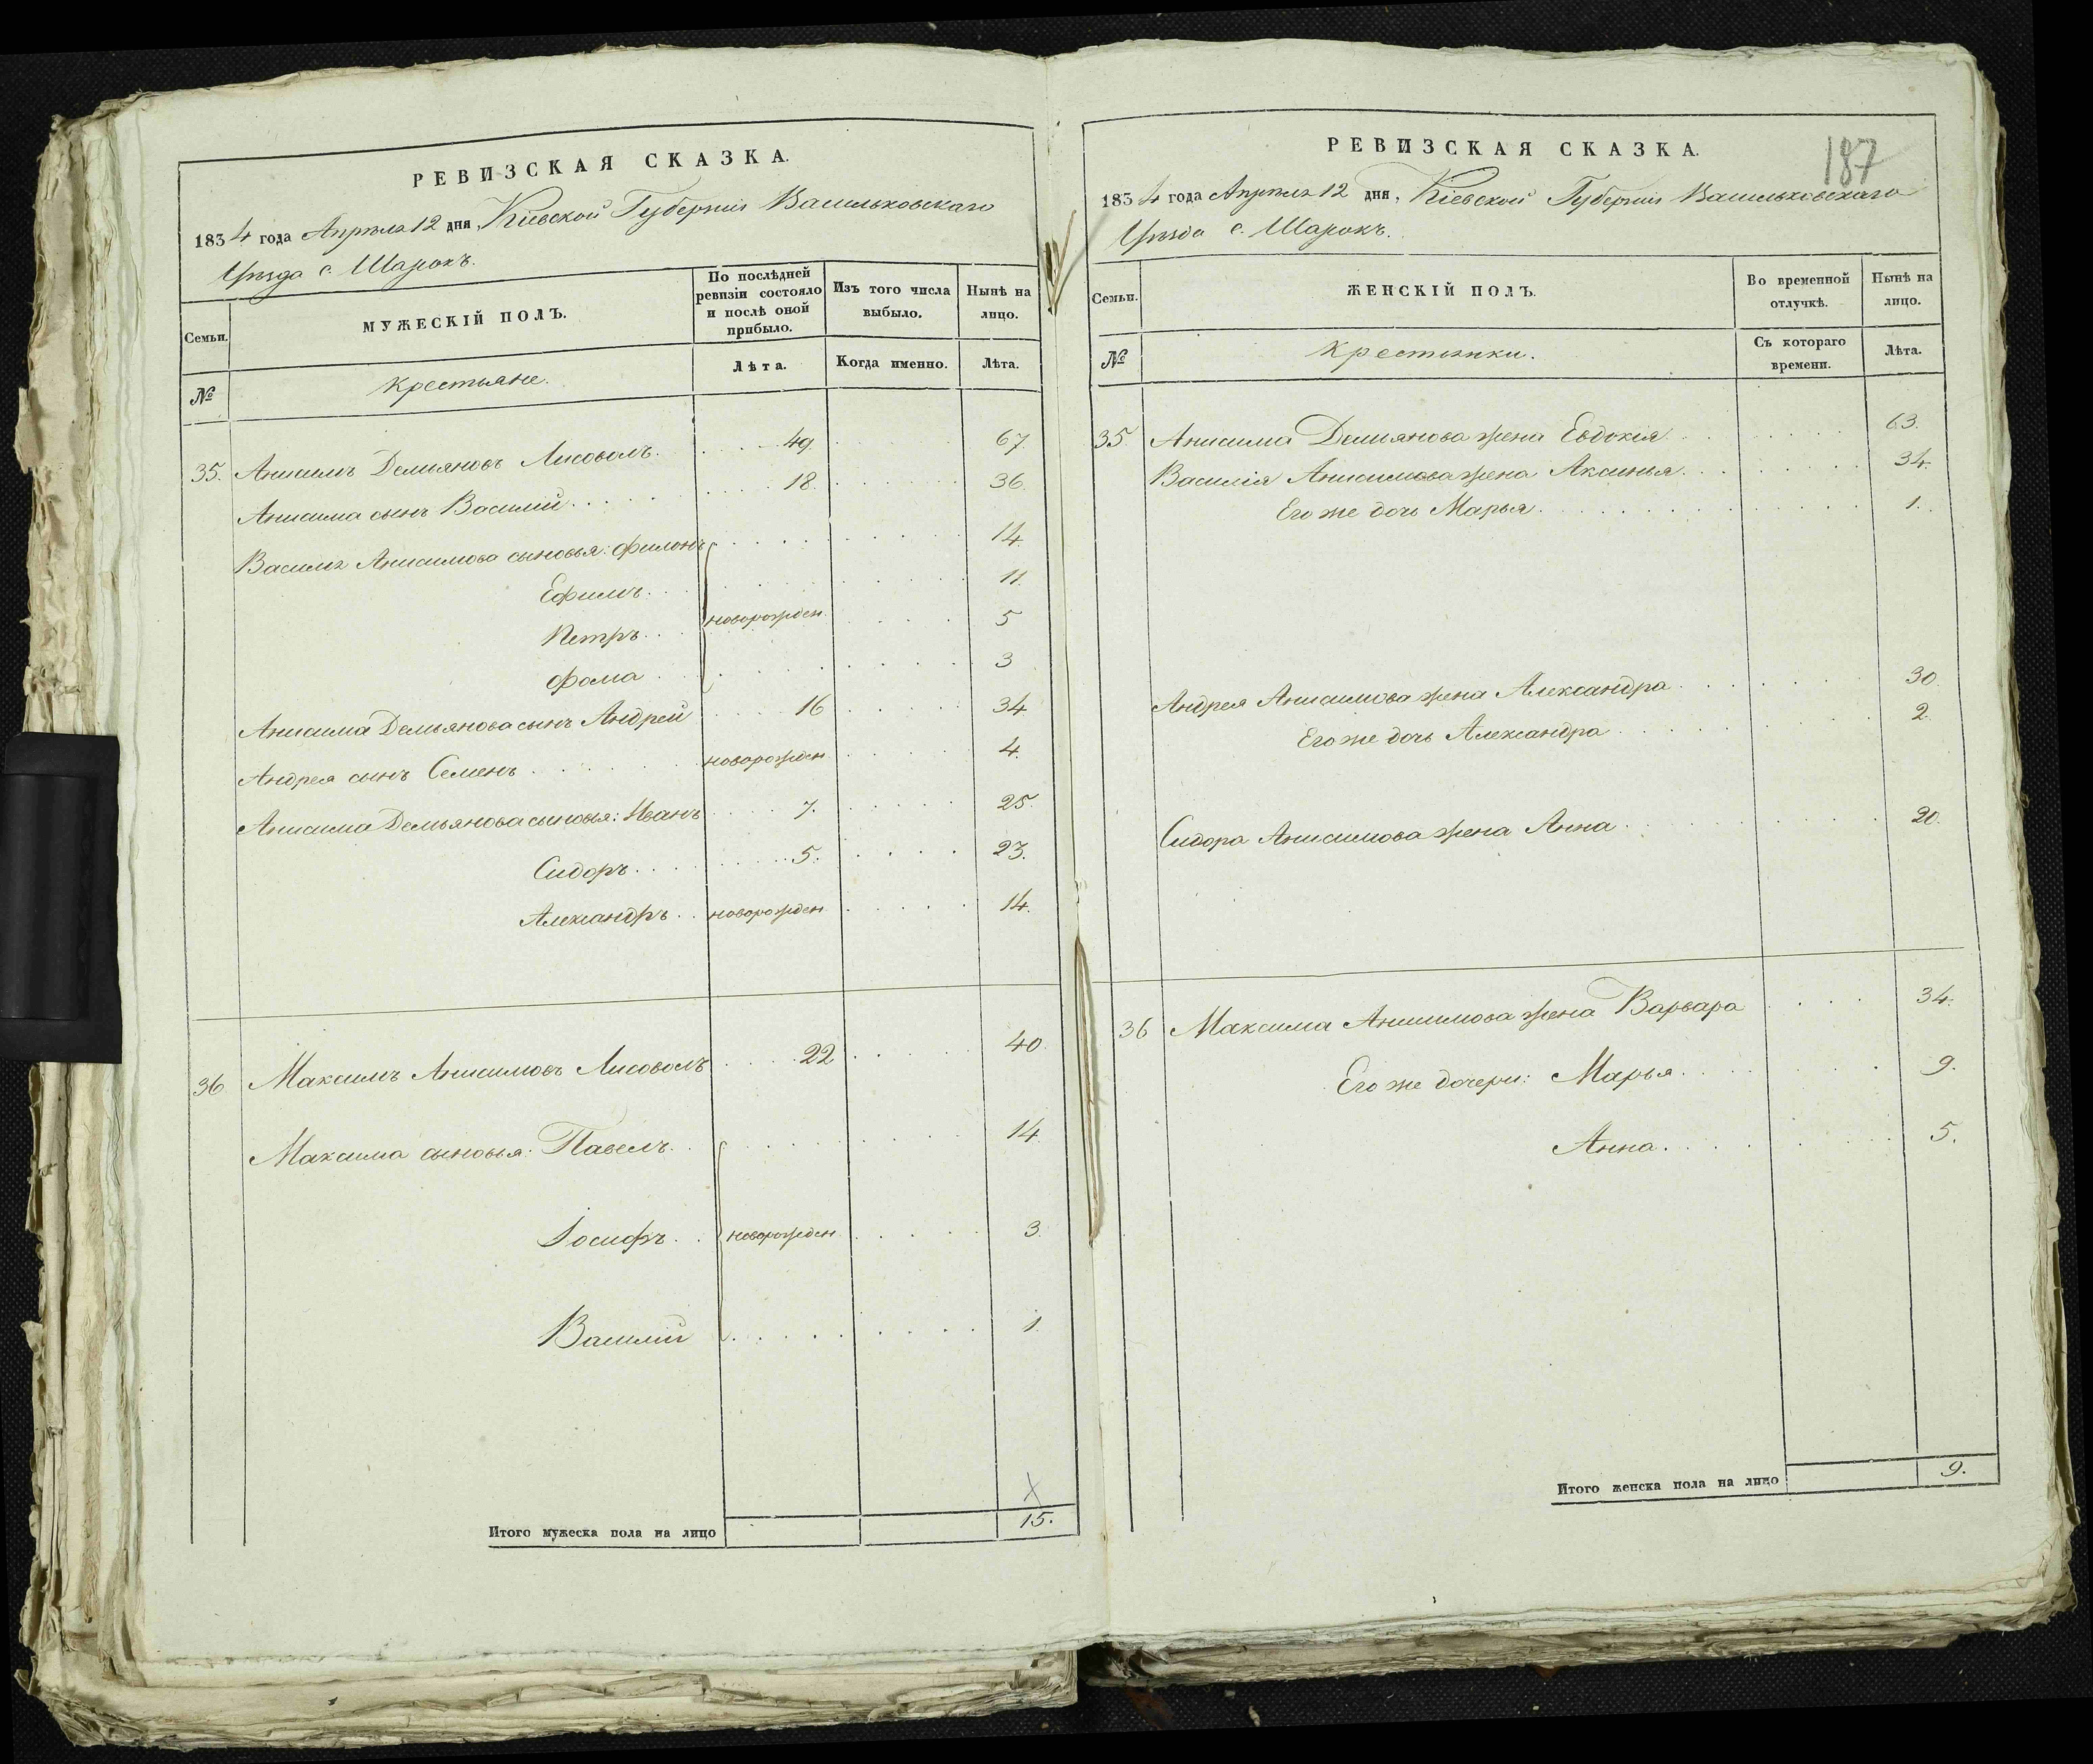 РЕВИЗСКАЯ СКАЗКА.
1834 года Апрѣля 12 дня, Кіевской Губерніи Васильковскаго
Уѣзда с. Шарокъ.
Семьи.
МУЖЕСКІЙ ПОЛЪ.
По послѣдней
ревизіи состояло
и послѣ оной
прибыло.
Изъ того числа
выбыло.
Нынѣ на
лицо.
№
крестьяне.
Лѣта.
Когда именно.
Лѣта.
35. Анисимъ Демьяновъ Лисоволъ. 49 67
Анисима сынъ Василий 18. 36.
Василя Анисимова сыновья: Филонъ 14.
Ефимъ. 11.
Петръ. новорожден. 5
Фома 3
Анисима Демьянова сынъ Андрей 16 34
Андрея сынъ Семенъ новорожден 4.
Анисима Демьянова сыновья: Иванъ 7. 25.
Сидоръ. 5. 23.
Александръ новорожден 14.
36 Максимъ Анисимовъ Лисоволъ 22 40
Максима сыновья: Павелъ. 14
Іосифъ. новорожден 3.
Василий 1.
Х
Итого мужеска пола на лицо 15.
187
РЕВИЗСКАЯ СКАЗКА.
1834 года Апрѣля 12 дня, Кіевской Губерніи Васильковскаго
Уѣзда с. Шарокъ.
Семьи.
ЖЕНСКІЙ ПОЛЪ.
Во временной
отлучкѣ.
Нынѣ на
лицо.
№
крестьянки.
Съ котораго
времени.
Лѣта.
35 Анисима Демьянова жена Евдокія 63.
Василія Анисимова жена Аксинья 34.
Его же дочь Марья 1.
Андрея Анисимова жена Александра 30
Его же дочь Александра 2
Сидора Анисимова жена Анна 20.
36 Максима Анисимова жена Варвара 34.
Его же дочери: Марья 9.
Анна 5.
Итого женска пола на лицо 9.